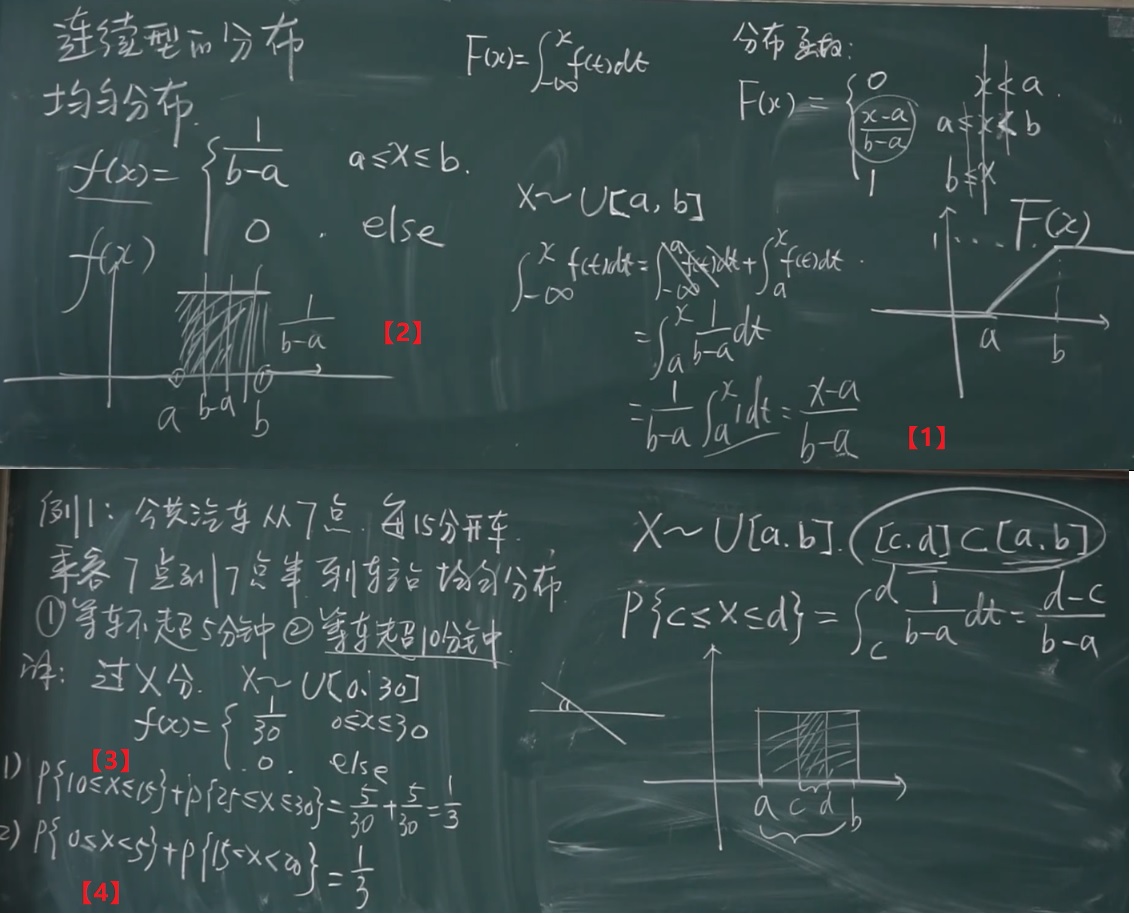 连续型的分布
均匀分布
f(x)= { 1/(b-a) a≤x≤b.
0 . else
f(x)
1/(b-a)
a b-a b
【2】
F(x)=∫_{-∞}^{x} f(t)dt
X~U[a,b]
∫_{-∞}^{x} f(t)dt=∫_{-∞}^{a} f(t)dt+∫_{a}^{x} f(t)dt.
=∫_{a}^{x} 1/(b-a) dt
=1/(b-a) ∫_{a}^{x} 1dt=(x-a)/(b-a)
分布函数:
F(x)= { 0 x<a.
(x-a)/(b-a) a≤x<b
1 b≤x
1 F(x)
a b
【1】
例1: 公共汽车从7点.每15分开车.
乘客7点到7点半到车站均匀分布.
①等车不超5分钟②等车超10分钟.
解: 过X分. X~U[0,30]
f(x)= { 1/30 0≤x≤30
0. else
【3】
1) P{10≤x≤15}+P{25≤x≤30}=5/30+5/30=1/3
2) P{0≤x<5}+P{15<x<20}=1/3
【4】
X~U[a.b]. [c.d]⊂[a.b]
P{c≤x≤d}=∫_{c}^{d} 1/(b-a) dt=(d-c)/(b-a)
a c d b